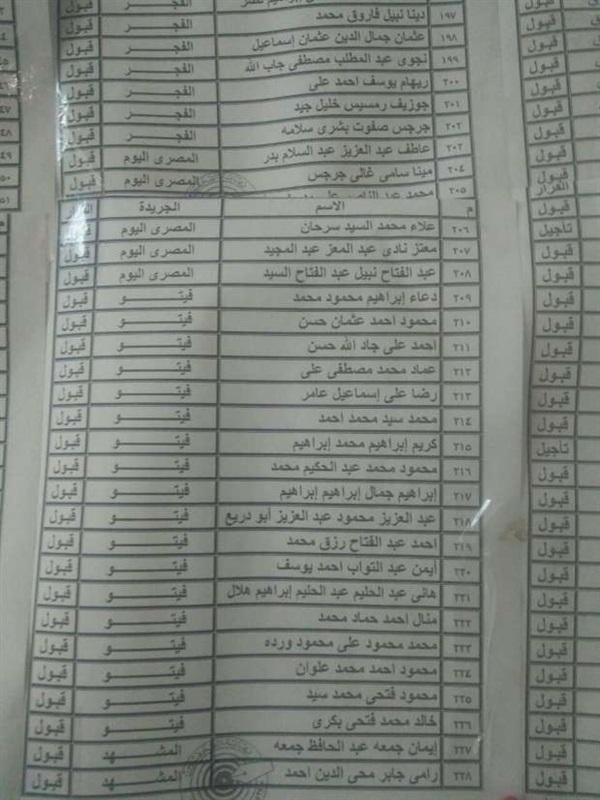 ١٩٧ دينا نبيل فاروق محمد الفجر قبول
١٩٨ عثمان جمال الدين عثمان إسماعيل الفجر قبول
١٩٩ نجوى عبد المطلب مصطفى جاب الله الفجر قبول
٢٠٠ ريهام يوسف احمد على الفجر قبول
٢٠١ جوزيف رمسيس خليل جيد الفجر قبول
٢٠٢ جرجس صفوت بشرى سلامه الفجر قبول
٢٠٣ عاطف عبد العزيز عبد السلام بدر المصرى اليوم قبول
٢٠٤ مينا سامى غالى جرجس المصرى اليوم قبول
٢٠٥ محمد عبد الناصر
م الاسم الجريدة القرار
٢٠٦ علاء محمد السيد سرحان المصرى اليوم قبول
٢٠٧ معتز نادى عبد المعز عبد المجيد المصرى اليوم قبول
٢٠٨ عبد الفتاح نبيل عبد الفتاح السيد المصرى اليوم قبول
٢٠٩ دعاء إبراهيم محمود محمد فيتو قبول
٢١٠ محمود احمد عثمان حسن فيتو قبول
٢١١ احمد على جاد الله حسن فيتو قبول
٢١٢ عماد محمد مصطفى على فيتو قبول
٢١٣ رضا على إسماعيل عامر فيتو قبول
٢١٤ محمد سيد محمد احمد فيتو قبول
٢١٥ كريم إبراهيم محمد إبراهيم فيتو قبول
٢١٦ محمود محمد عبد الحكيم محمد فيتو قبول
٢١٧ إبراهيم جمال إبراهيم إبراهيم فيتو قبول
٢١٨ عبد العزيز محمود عبد العزيز أبو دريع فيتو قبول
٢١٩ احمد عبد الفتاح رزق محمد فيتو قبول
٢٢٠ أيمن عبد التواب احمد يوسف فيتو قبول
٢٢١ هانى عبد الحليم عبد الحليم إبراهيم هلال فيتو قبول
٢٢٢ منال احمد حماد محمد فيتو قبول
٢٢٣ محمد محمود على محمود ورده فيتو قبول
٢٢٤ محمود احمد محمد علوان فيتو قبول
٢٢٥ محمود فتحى محمد سيد فيتو قبول
٢٢٦ خالد محمد فتحى بكرى فيتو قبول
٢٢٧ إيمان جمعه عبد الحافظ جمعه المشهد قبول
٢٢٨ رامى جابر محى الدين احمد المشهد قبول